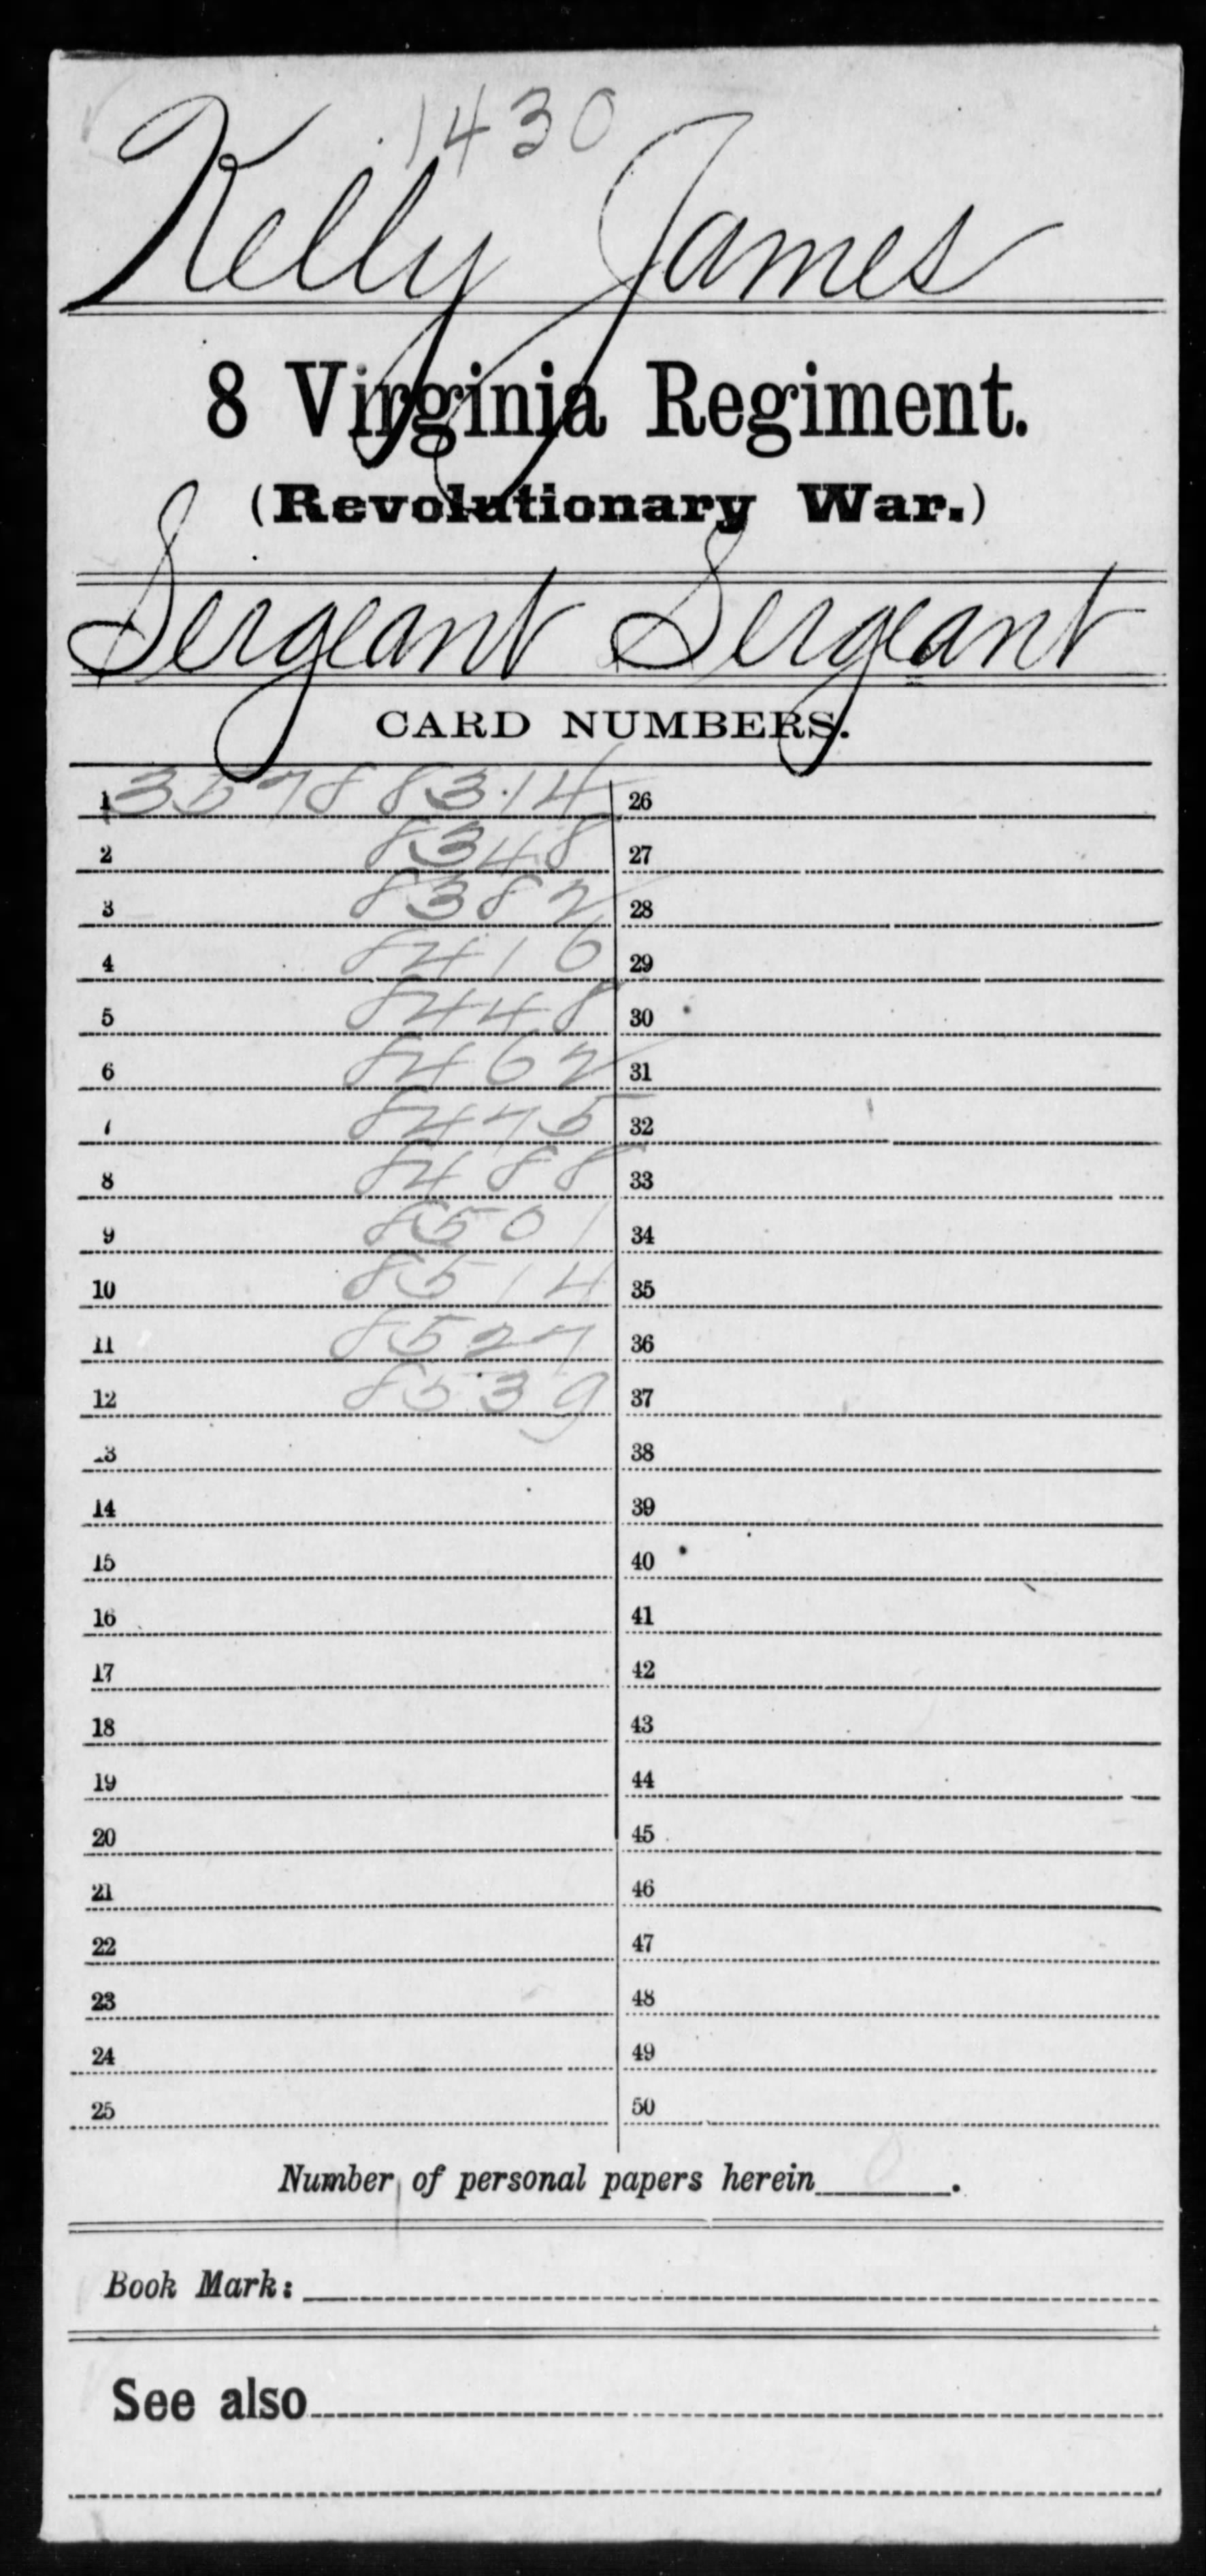 1430
Kelly James
8 Virginia Regiment.
(Revolutionary War.)
Sergeant Sergeant
CARD NUMBERS.
1 3578 8314 26
2 8348 27
3 8382 28
4 8416 29
5 8448 30
6 8462 31
7 8475 32
8 8488 33
9 8501 34
10 8514 35
11 8527 36
12 8539 37
13 38
14 39
15 40
16 41
17 42
18 43
19 44
20 45
21 46
22 47
23 48
24 49
25 50
Number of personal papers herein 0.
Book Mark:
See also